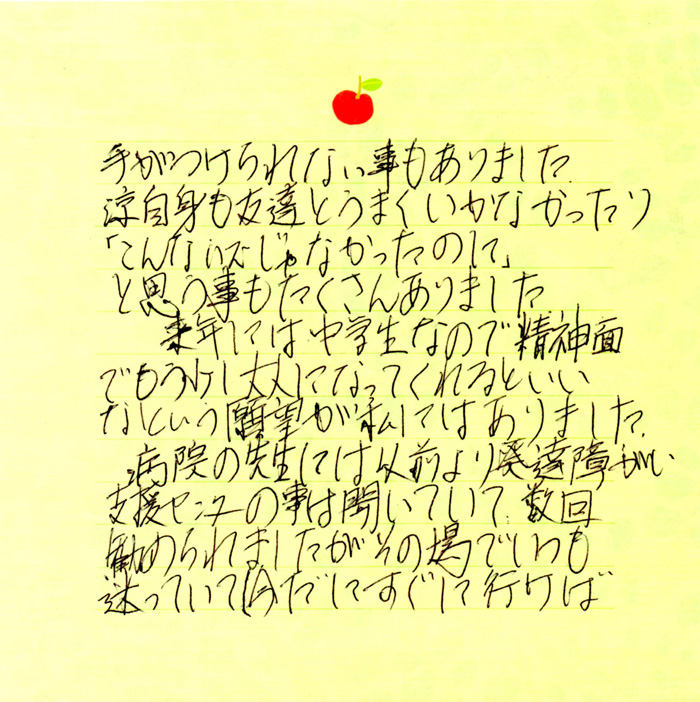 手がつけられない事もありました
涼自身も友達とうまくいかなかったり
「こんなハズじゃなかったのに」
と思う事もたくさんありました
来年には中学生なので精神面
でもう少し丈夫になってくれるといい
なという願望が私にはありました
病院の先生には以前より発達障がい
支援センターの事は聞いていて数回
勧められましたがその場でいつも
迷っていて だにすぐに行けば